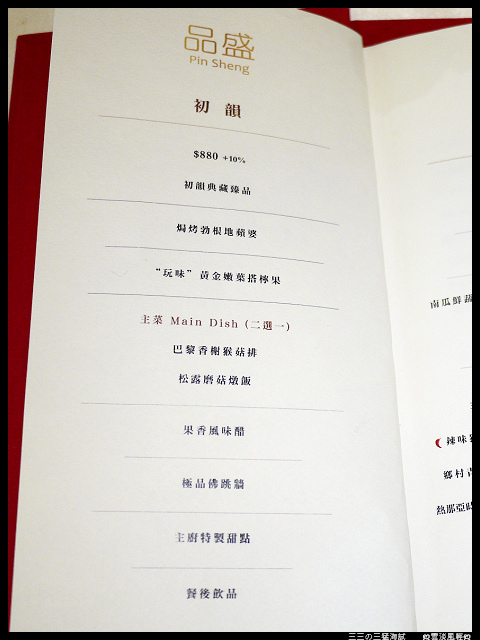 品盛
Pin Sheng
初韻
$880 +10%
初韻典藏臻品
焗烤勃根地蘋婆
“玩味”黃金嫩葉搭檸果
主菜 Main Dish (二選一)
巴黎香榭猴菇排
松露磨菇燉飯
果香風味醋
極品佛跳牆
主廚特製甜點
餐後飲品
南瓜鮮蔬
辣味
鄉村
熱那亞
三三の三猛海賊
雲淡風輕